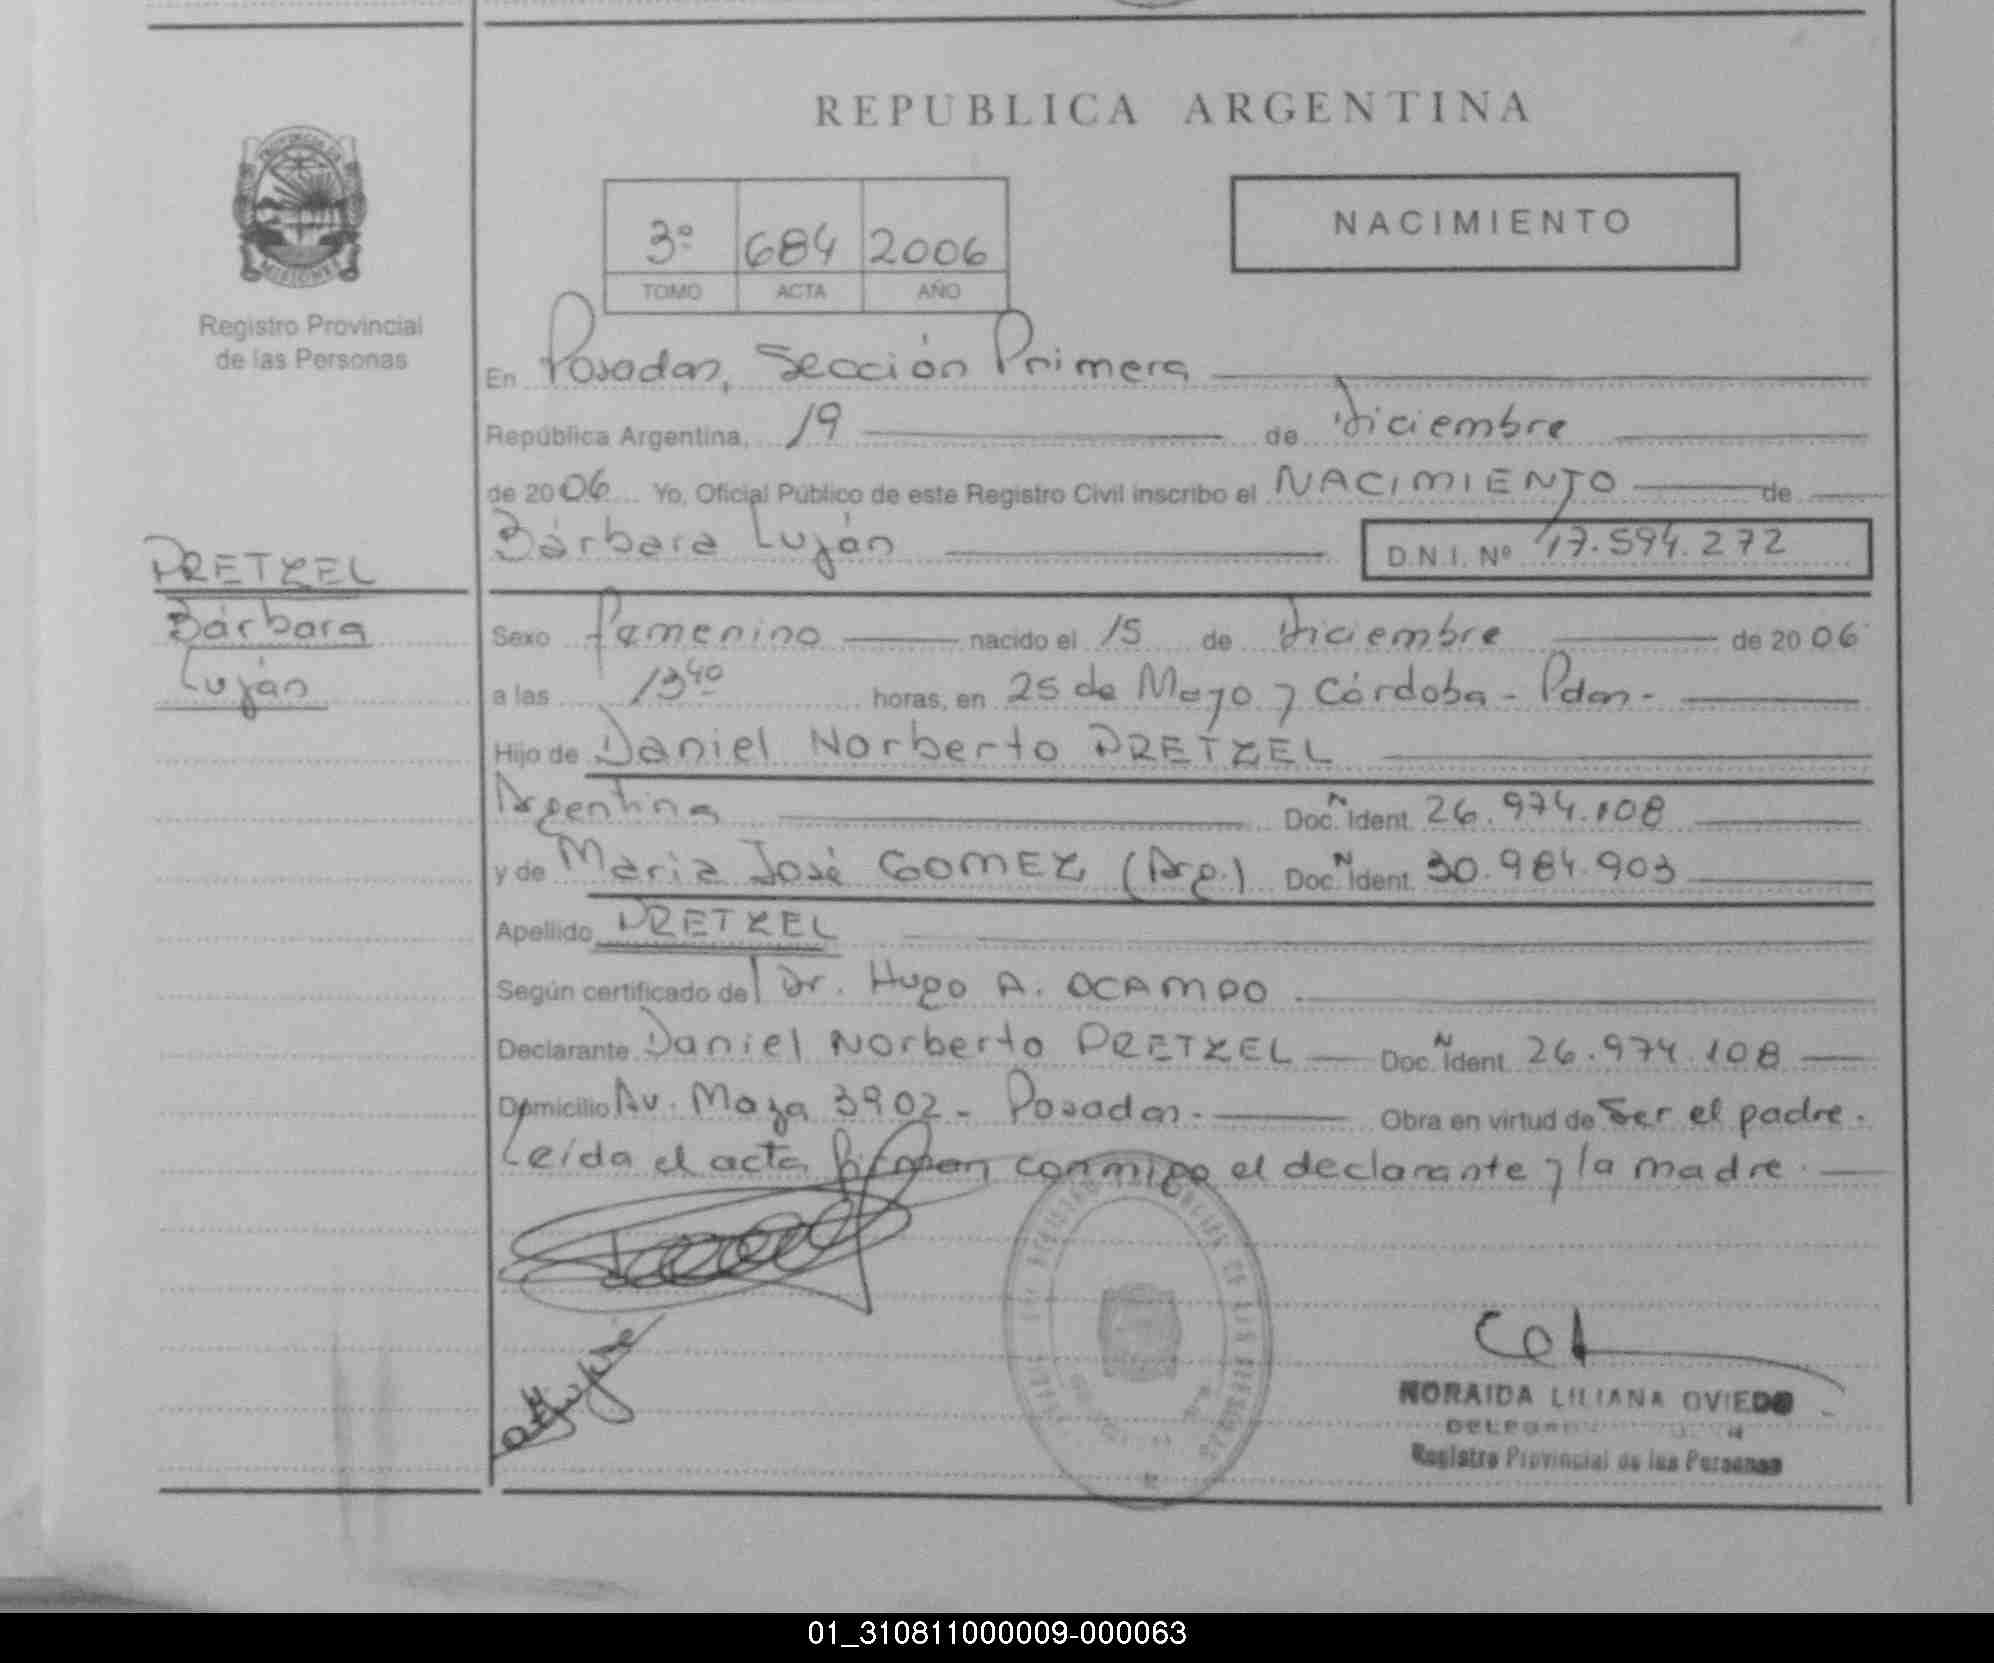 REPUBLICA ARGENTINA
PROVINCIA DE
MISIONES
Registro Provincial
de las Personas
3º 684 2006
TOMO ACTA AÑO
NACIMIENTO
En Posadas, Sección Primera
República Argentina, 19 de Diciembre
de 2006 Yo, Oficial Público de este Registro Civil inscribo el NACIMIENTO de
Bárbara Luján D.N.I. Nº 47.594.272
PRETZEL
Bárbara
Luján
Sexo Femenino nacido el 15 de Diciembre de 2006
a las 13 40 horas, en 25 de Mayo y Córdoba - Pdas -
Hijo de Daniel Norberto PRETZEL
Argentina Doc. N Ident. 26.974.108
y de María José GOMEZ (Arg.) Doc. N Ident. 30.984.903
Apellido PRETZEL
Según certificado del Dr. Hugo A. OCAMPO
Declarante Daniel Norberto PRETZEL Doc. N Ident. 26.974.108
Domicilio Av. Maza 3902 - Posadas - Obra en virtud de Ser el padre.
Leída el acta firman conmigo el declarante y la madre.
NORAIDA LILIANA OVIEDO
Registro Provincial de las Personas
01_310811000009-000063